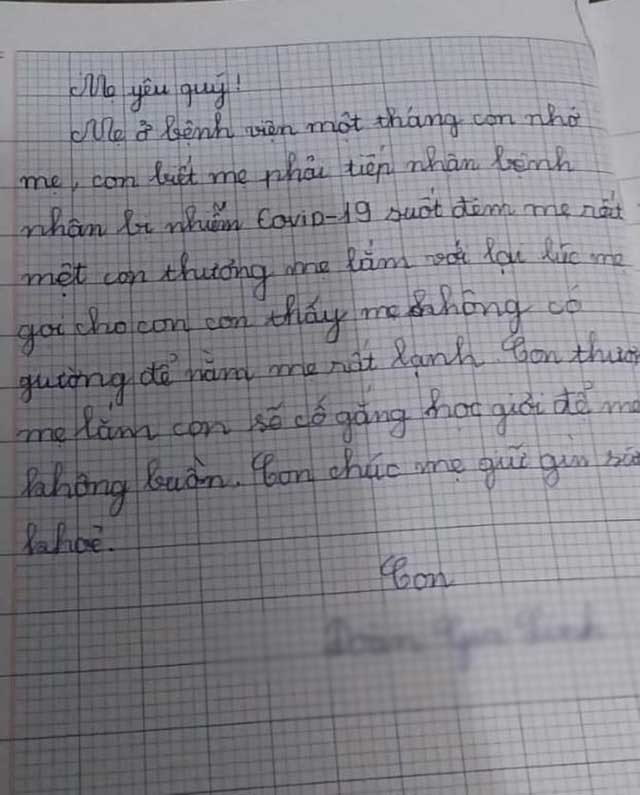 Mẹ yêu quý!
Mẹ ở bệnh viện một tháng con nhớ
mẹ, con biết mẹ phải tiếp nhận bệnh
nhân bị nhiễm Covid-19 suốt đêm mẹ rất
mệt con thương mẹ lắm với lại lúc mẹ
gọi cho con con thấy mẹ không có
gường để nằm mẹ rất lạnh. Con thươ
mẹ lắm con sẽ cố gắng học giỏi để mẹ
không buồn. Con chúc mẹ giữ gìn sứ
khoẻ.
Con